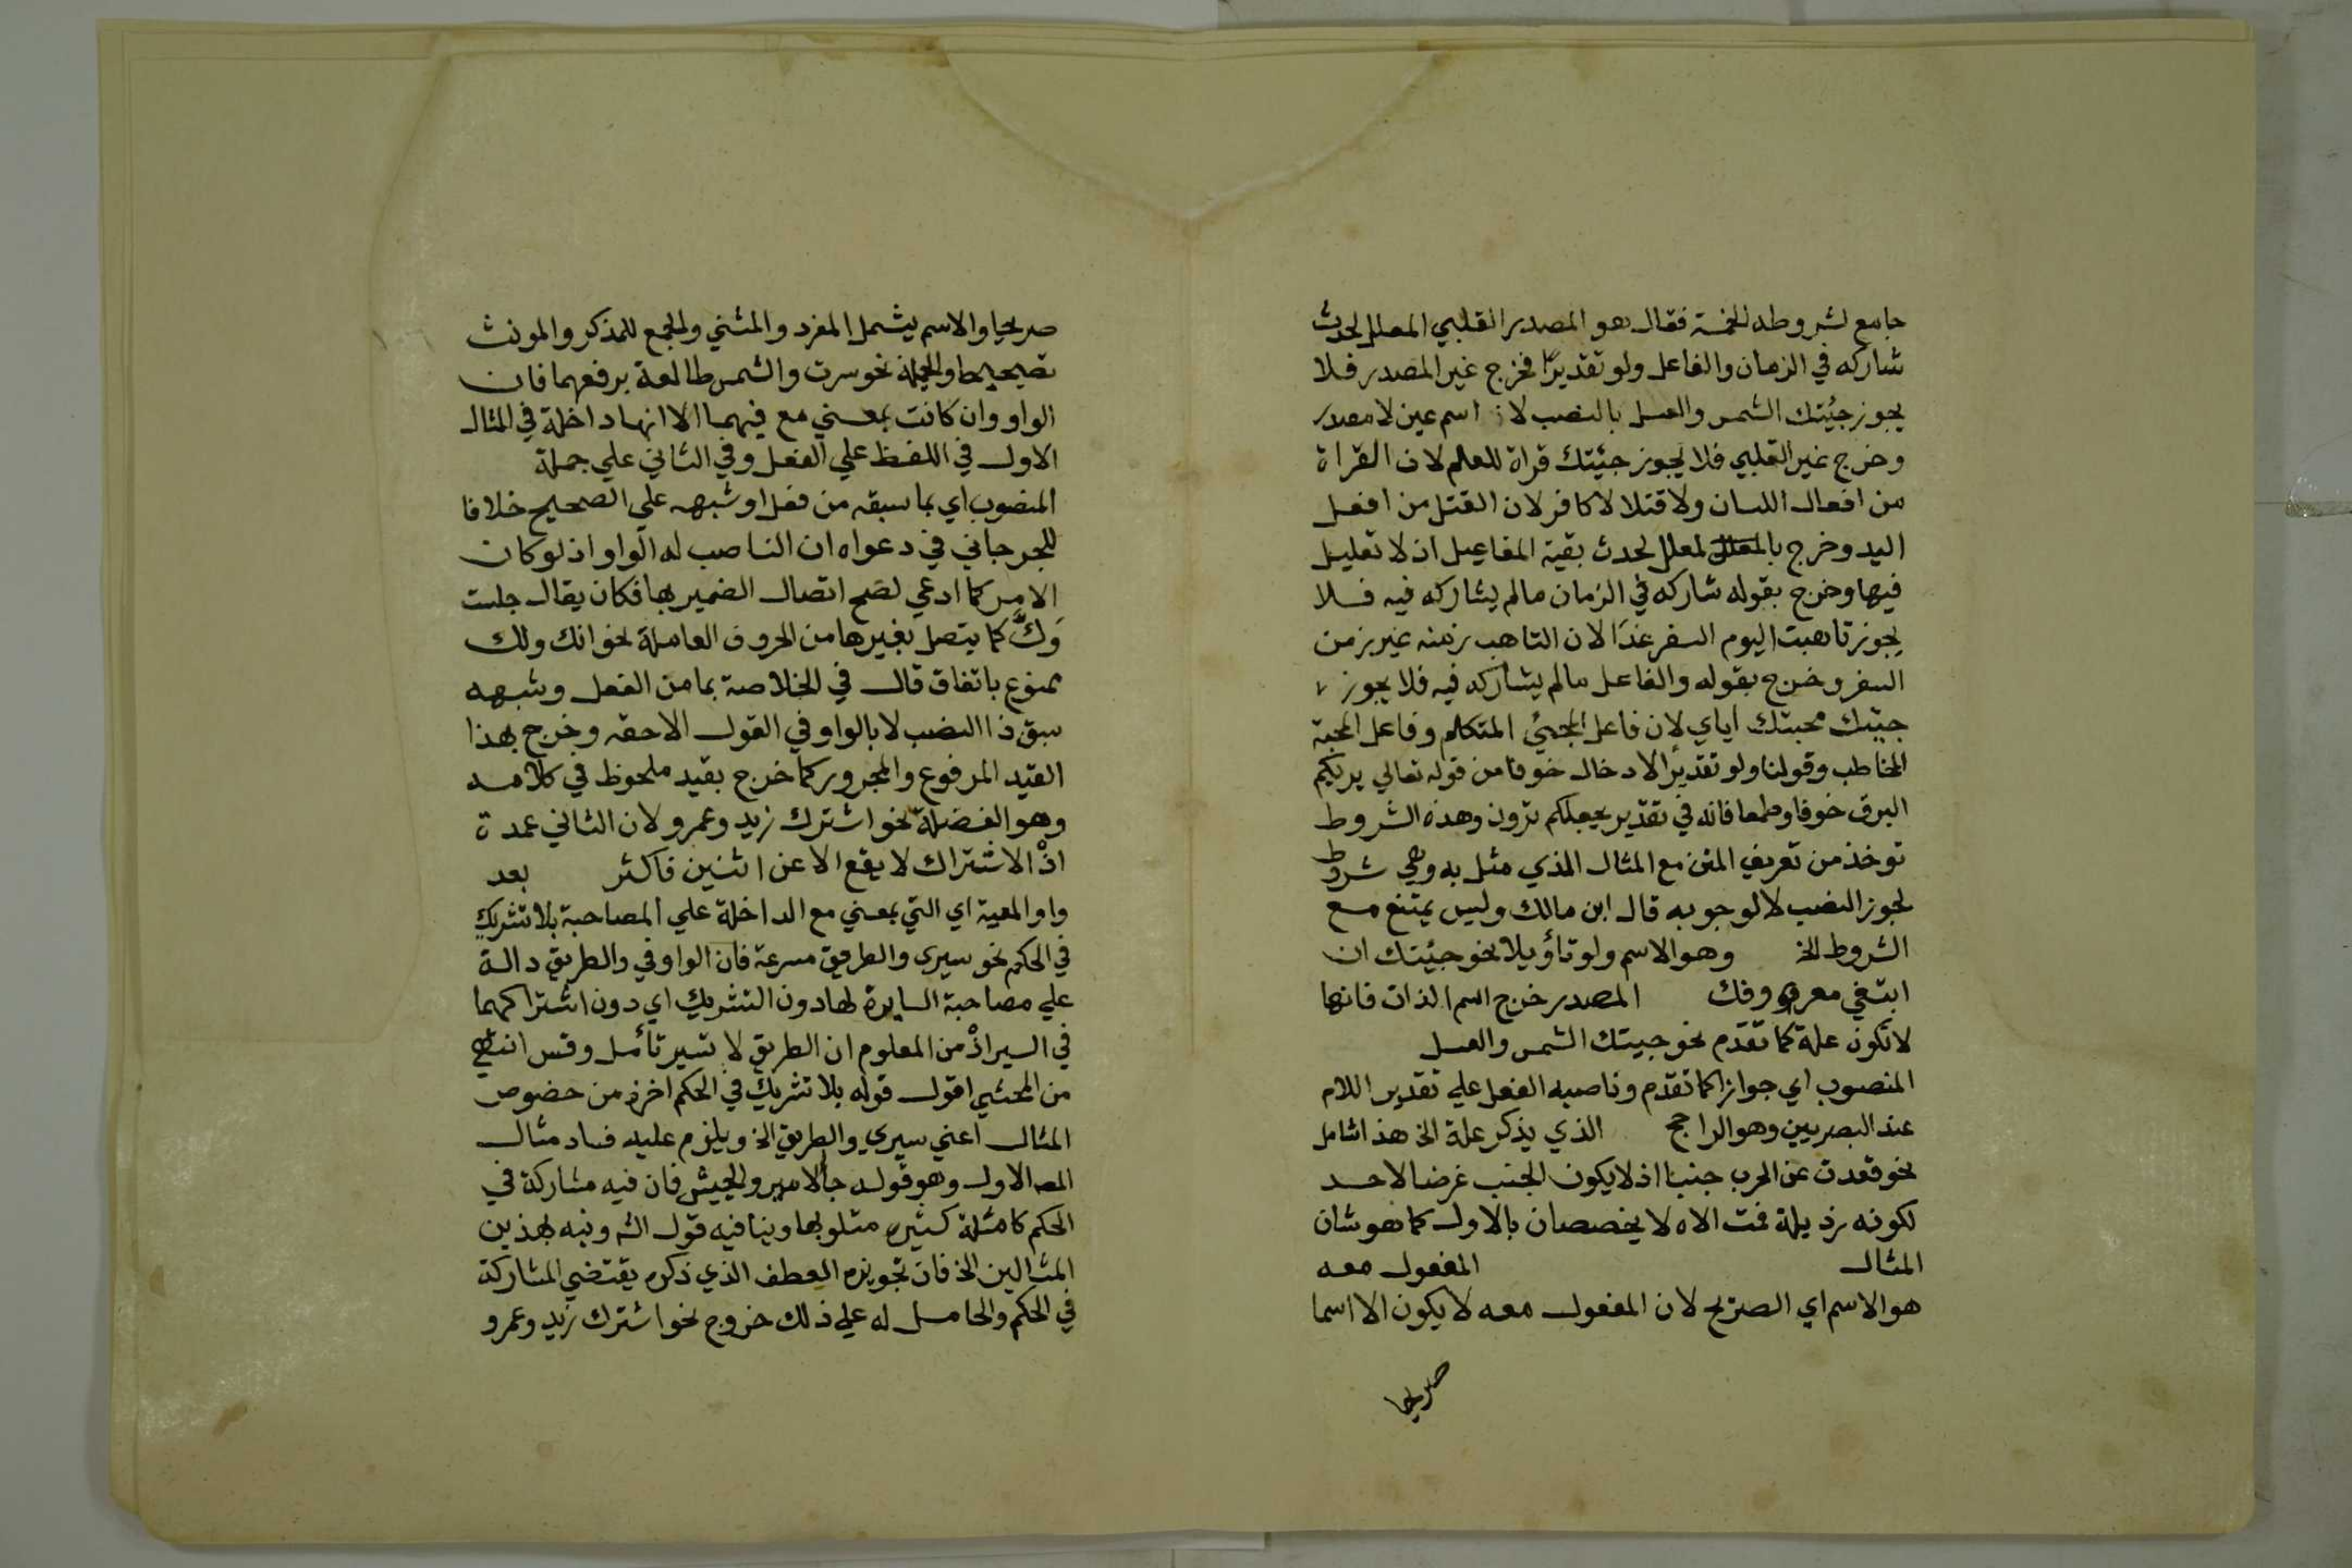 جامع لشروطه الخمسة فقال هو المصدر القلبي المعلل لحدث
شاركه في الزمان والفاعل ولو تقديرًا فخرج غير المصدر فلا
يجوز جئتك الشمس والعسل بالنصب لانه اسم عين لا مصدر
وخرج غير القلبي فلا يجوز جئتك قراة للعلم لان القراة
من افعال اللسان ولا قتلا لا كافر لان القتل من افعل
اليد وخرج بالمعلل لمعلل لحدث بقية المفاعيل اذ لا تعليل
فيها وخرج بقوله شاركه في الزمان مالم يشاركه فيه فلا
يجوز تاهبت اليوم السفر غدًا لان التاهب زمنه غير زمن
السفر وخرج بقوله والفاعل مالم يشاركه فيه فلا يجوز
جيتك محبتك اياي لان فاعل المجئ المتكلم وفاعل المحبة
المخاطب وقولنا ولو تقديرًا لادخال خوفا من قوله تعالي يريكم
البرق خوفا وطمعا فانه في تقدير يجعلكم ترون وهذه الشروط
توخذ من تعريف المتن مع المثال الذي مثل به وهي شروط
لجوز النصب لا لوجوبه قال ابن مالك وليس يمتنع مع
الشروط الخ وهو الاسم ولو تأويلا نحو جئيتك ان
ابتغي معروفك المصدر خرج اسم الذات فانها
لا تكون علة كما تقدم نحو جيتك الشمس والعسل
المنصوب اي جوازا كما تقدم وناصبه الفعل علي تقدير اللام
عند البصريين وهو الراجح الذي يذكر علة الخ هذا شامل
نحو قعدت عن الحرب جنبا اذ لا يكون الجنب غرضا لاحد
لكونه رذيلة فت الاه لا يخصصان بالاول كما هو شان
المثال المفعول معه
هو الاسم اي الصريح لان المفعول معه لا يكون الا اسما
صريحا
صريحا والاسم يشمل المفرد والمثني والجمع للمذكر والمونث
تصحيحا والجملة نحو سرت والشمس طالعة برفعهما فان
الواو وان كانت بمعني مع فيهما الا انها داخلة في المثال
الاول في اللفظ علي الفعل وفي الثاني علي جملة
المنصوب اي بما سبقه من فعل او شبهه علي الصحيح خلافا
للجرجاني في دعواه ان الناصب له الواو اذ لو كان
الامر كما ادعي لصح اتصال الضمير بها فكان يقال جلست
وَكَ كما يتصل بغيرها من الحروف العاملة نحو انك ولك
ممنوع باتفاق قال في الخلاصة بما من الفعل وشبهه
سبق ذا النصب لا بالواو في القول الاحقه وخرج بهذا
القيد المرفوع والمجرور كما خرج بقيد ملحوظ في كلامه
وهو الفضلة نحو اشترك زيد وعمرو لان الثاني عمدة
اذْ الاشتراك لا يقع الا عن اثنين فاكثر بعد
واو المعية اي التي بمعني مع الداخلة علي المصاحبة بلا تشريك
في الحكم نحو سيري والطريق مسرعة فان الواو في والطريق دالة
علي مصاحبة السايرة لها دون التشريك اي دون اشتراكهما
في السير اذْ من المعلوم ان الطريق لا تسير تأمل وقس انتهي
من المحشي اقول قوله بلا تشريك في الحكم اخرذ من خضوص
المثال اعني سيري والطريق الخ ويلزم عليه فساد مثال
المصه الاول وهو قوله جا الامير والجيش فان فيه مشاركة في
الحكم كامثلة كثيره مثلو بها وينافيه قول الشه ونبه بهذين
المثالين الخ فان تجويزه العطف الذي ذكره يقتضي المشاركة
في الحكم والحامل له علي ذلك خروج نحو اشترك زيد وعمرو